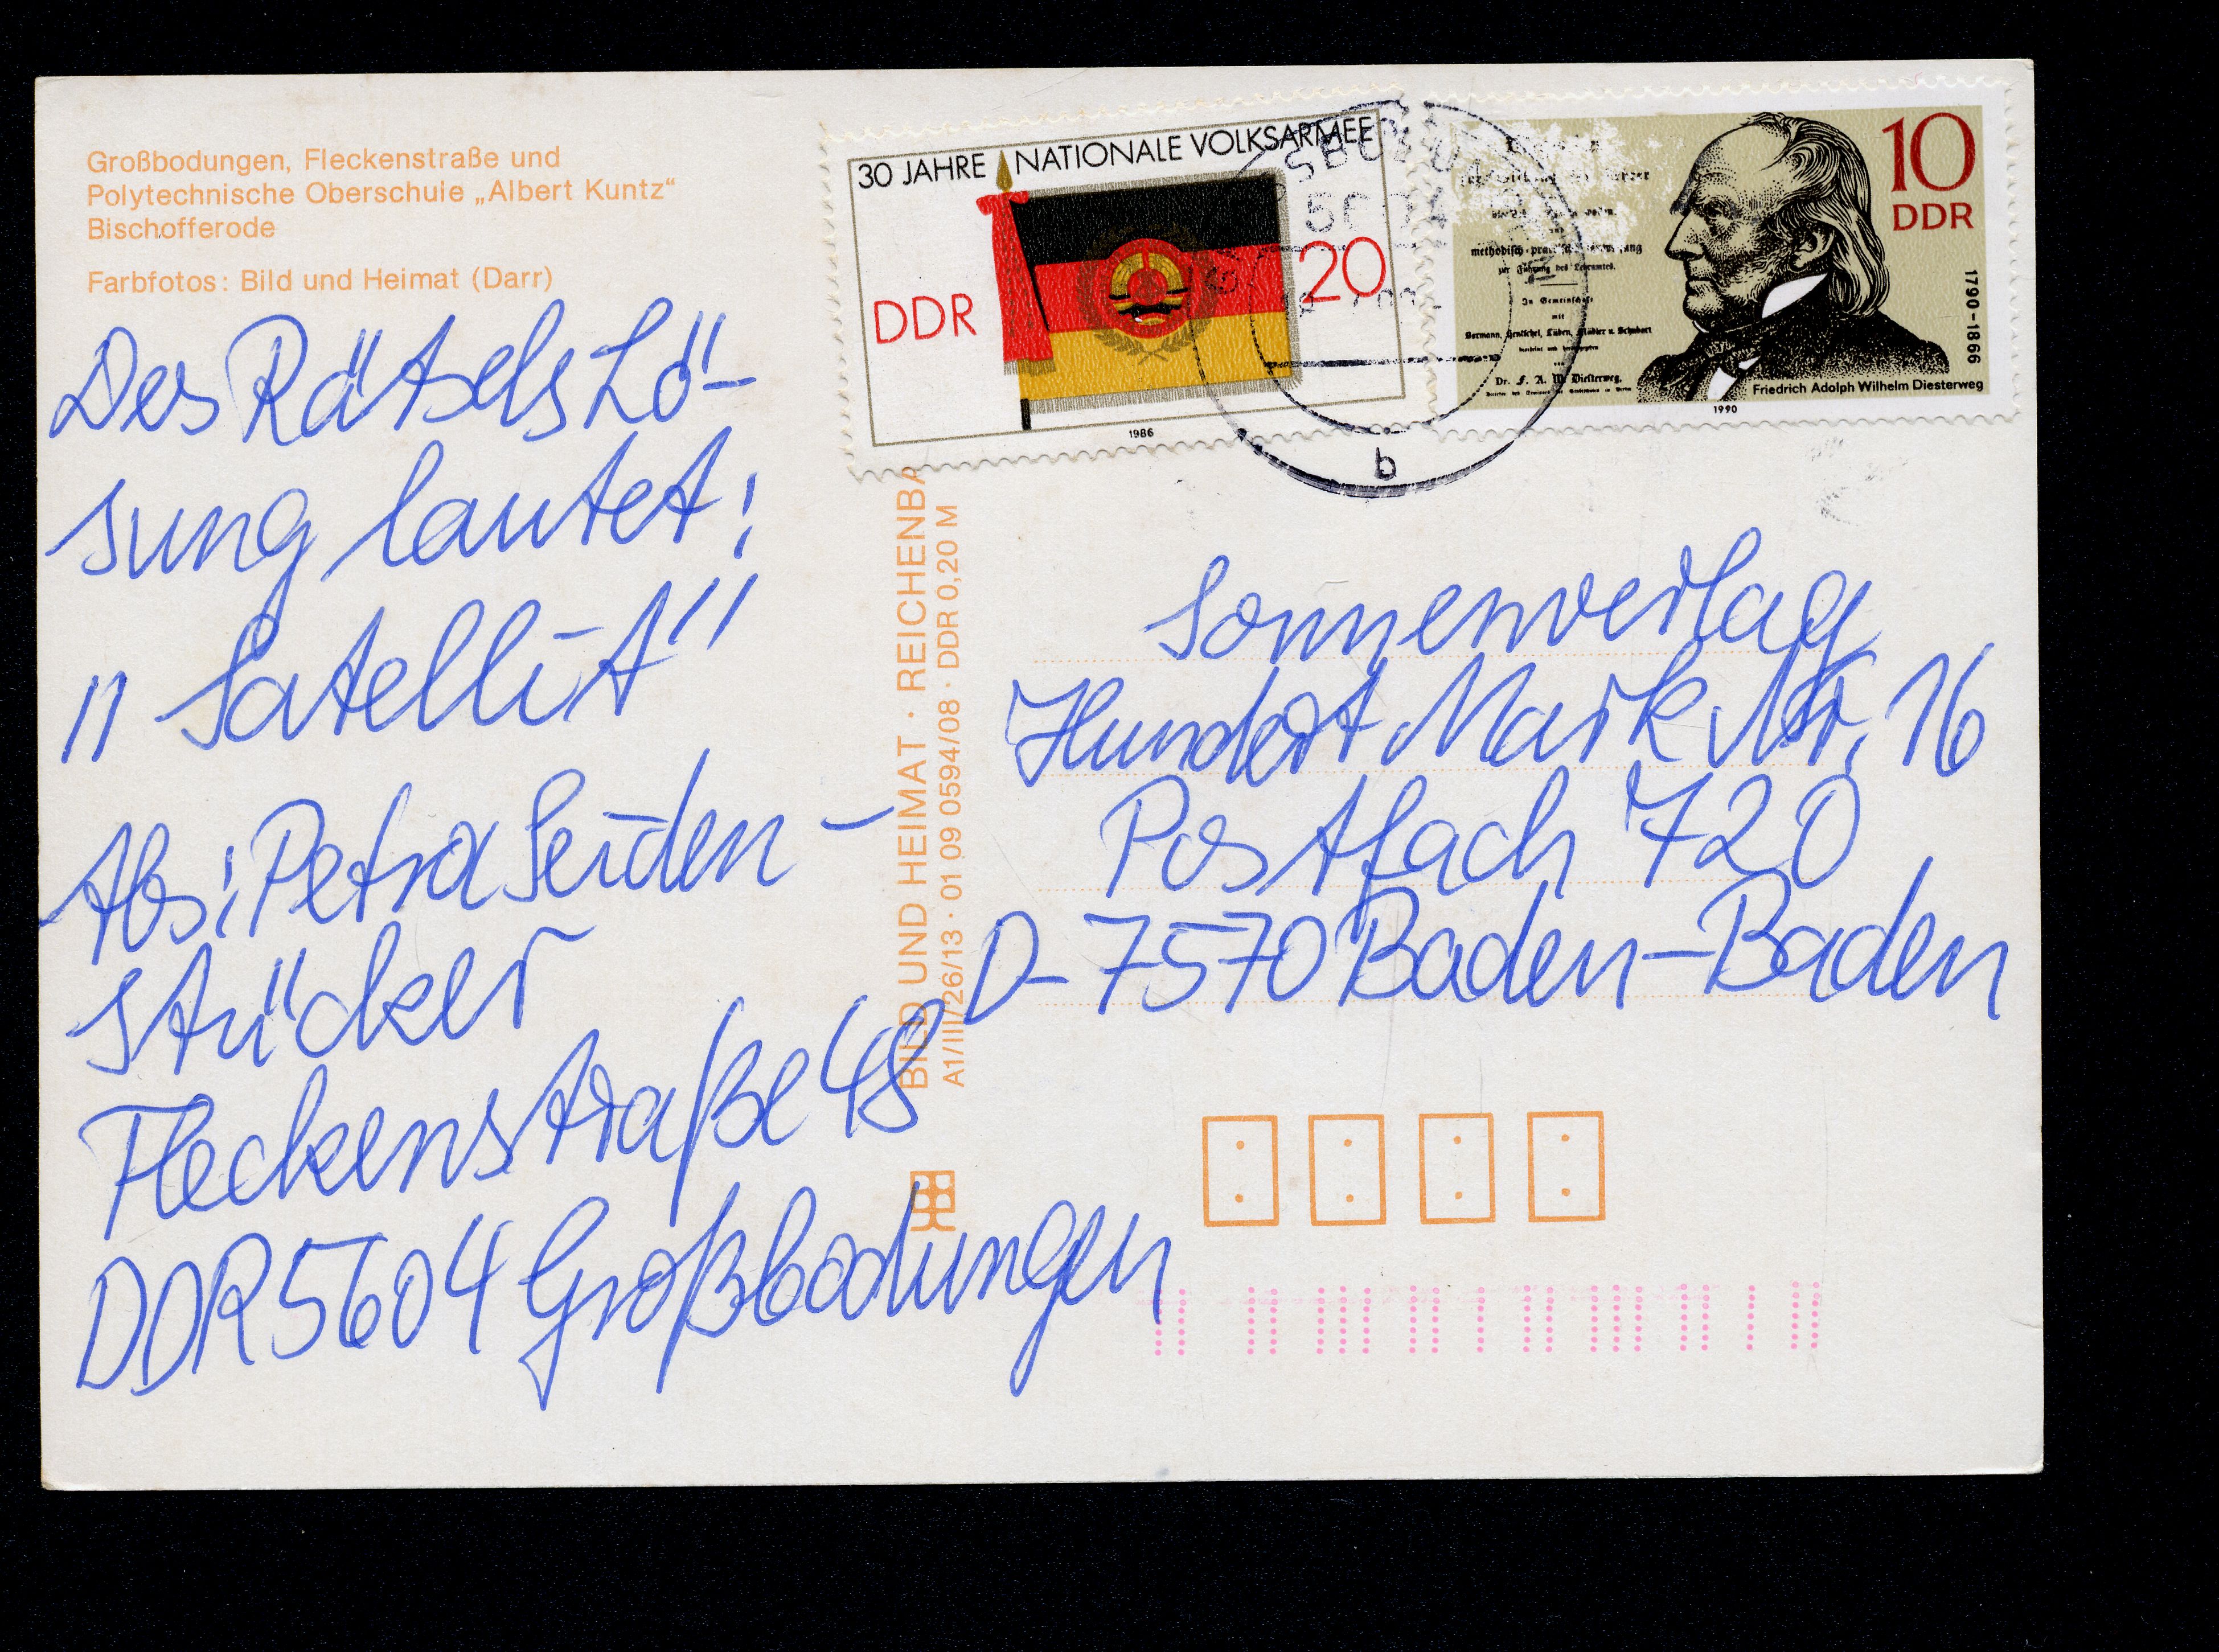 Großbodungen, Fleckenstraße und
Polytechnische Oberschule „Albert Kuntz“
Bischofferode
Farbfotos: Bild und Heimat (Darr)
Des Rätsels Lö-
sung lautet:
"Satellit"
Abs: Petra Seiden-
stücker
Fleckenstraße 48
DDR 5604 Großbodungen
BILD UND HEIMAT · REICHENBA
A1/III/26/13 · 01 09 0594/08 · DDR 0,20 M
30 JAHRE NATIONALE VOLKSARMEE
DDR
20
1986
b
10
DDR
1790–1866
methodisch
zur Führung des Lehramtes.
In Gemeinschaft
mit
Dr. F. A. W. Diesterweg,
Friedrich Adolph Wilhelm Diesterweg
1990
Sonnenverlag
Hundert Mark Nr. 16
Postfach 720
D-7570 Baden-Baden